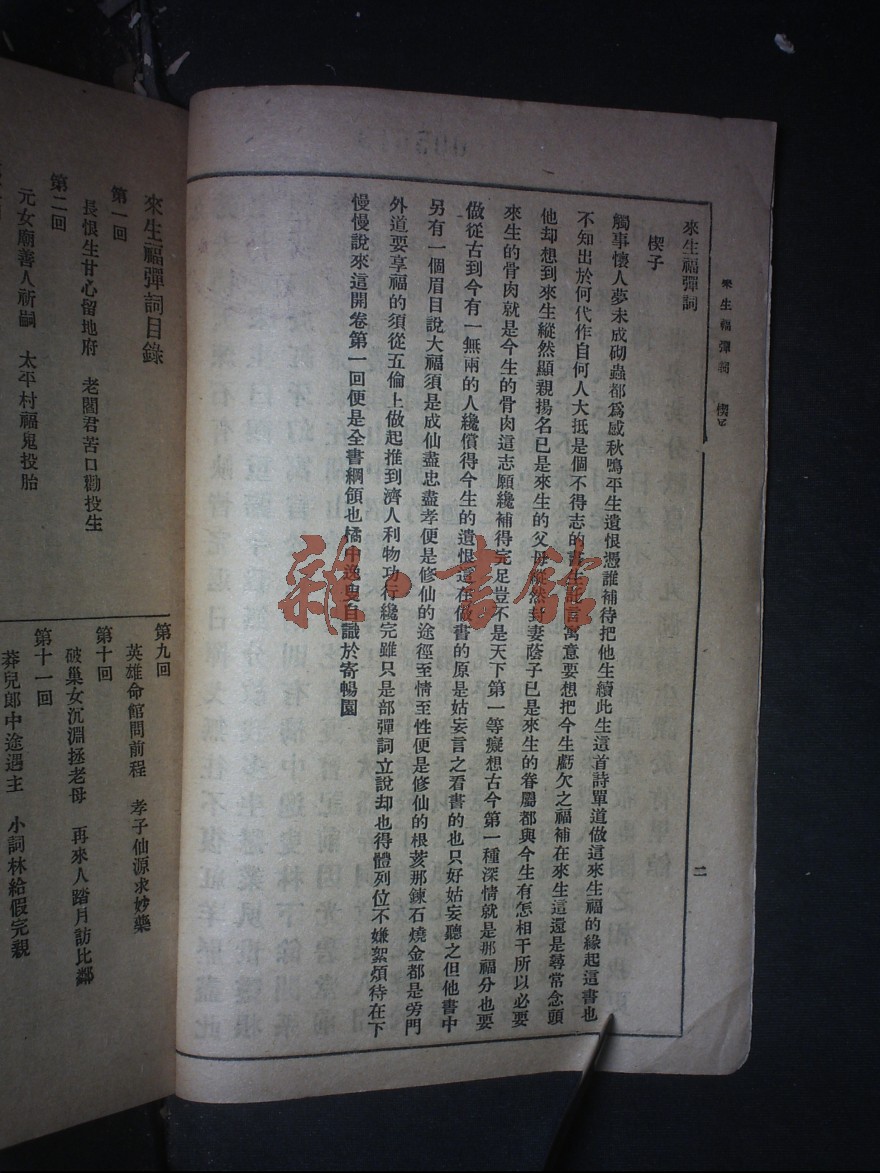 來生福彈詞　楔子
二
來生福彈詞
楔子
觸事懷人夢未成砌蟲都爲感秋鳴平生遺恨憑誰補待把他生續此生這首詩單道做這來生福的緣起這書也
不知出於何代作自何人大抵是個不得志的書生託言寓意要想把今生虧欠之福補在來生這還是尋常念頭
他却想到來生縱然顯親揚名已是來生的父母縱然封妻蔭子已是來生的眷屬都與今生有怎相干所以必要
來生的骨肉就是今生的骨肉這志願纔補得完足豈不是天下第一等癡想古今第一種深情就是那福分也要
做從古到今有一無兩的人纔償得今生的遺恨還在做書的原是姑妄言之看書的也只好姑妄聽之但他書中
另有一個眉目說大福須是成仙盡忠盡孝便是修仙的途徑至情至性便是修仙的根荄那鍊石燒金都是旁門
外道要享福的須從五倫上做起推到濟人利物功行纔完雖只是部彈詞立說却也得體列位不嫌絮煩待在下
慢慢說來這開卷第一回便是全書綱領也橘中逸叟自識於寄暢園
來生福彈詞目錄
第一回
長恨生甘心留地府　老閻君苦口勸投生
第二回
元女廟善人祈嗣　太平村福鬼投胎
第九回
英雄命館問前程　孝子仙源求妙藥
第十回
破巢女沉淵拯老母　再來人踏月訪比鄰
第十一回
莽兒郎中途遇主　小詞林給假完親
雜·書館